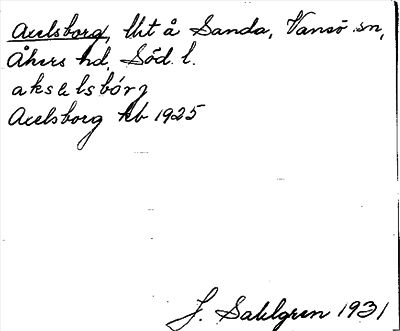 Axelsborg, lht å Sanda, Vansö sn,
Åkers hd, Söd. l.
akselsbórg
Axelsborg kb 1925
J. Sahlgren 1931